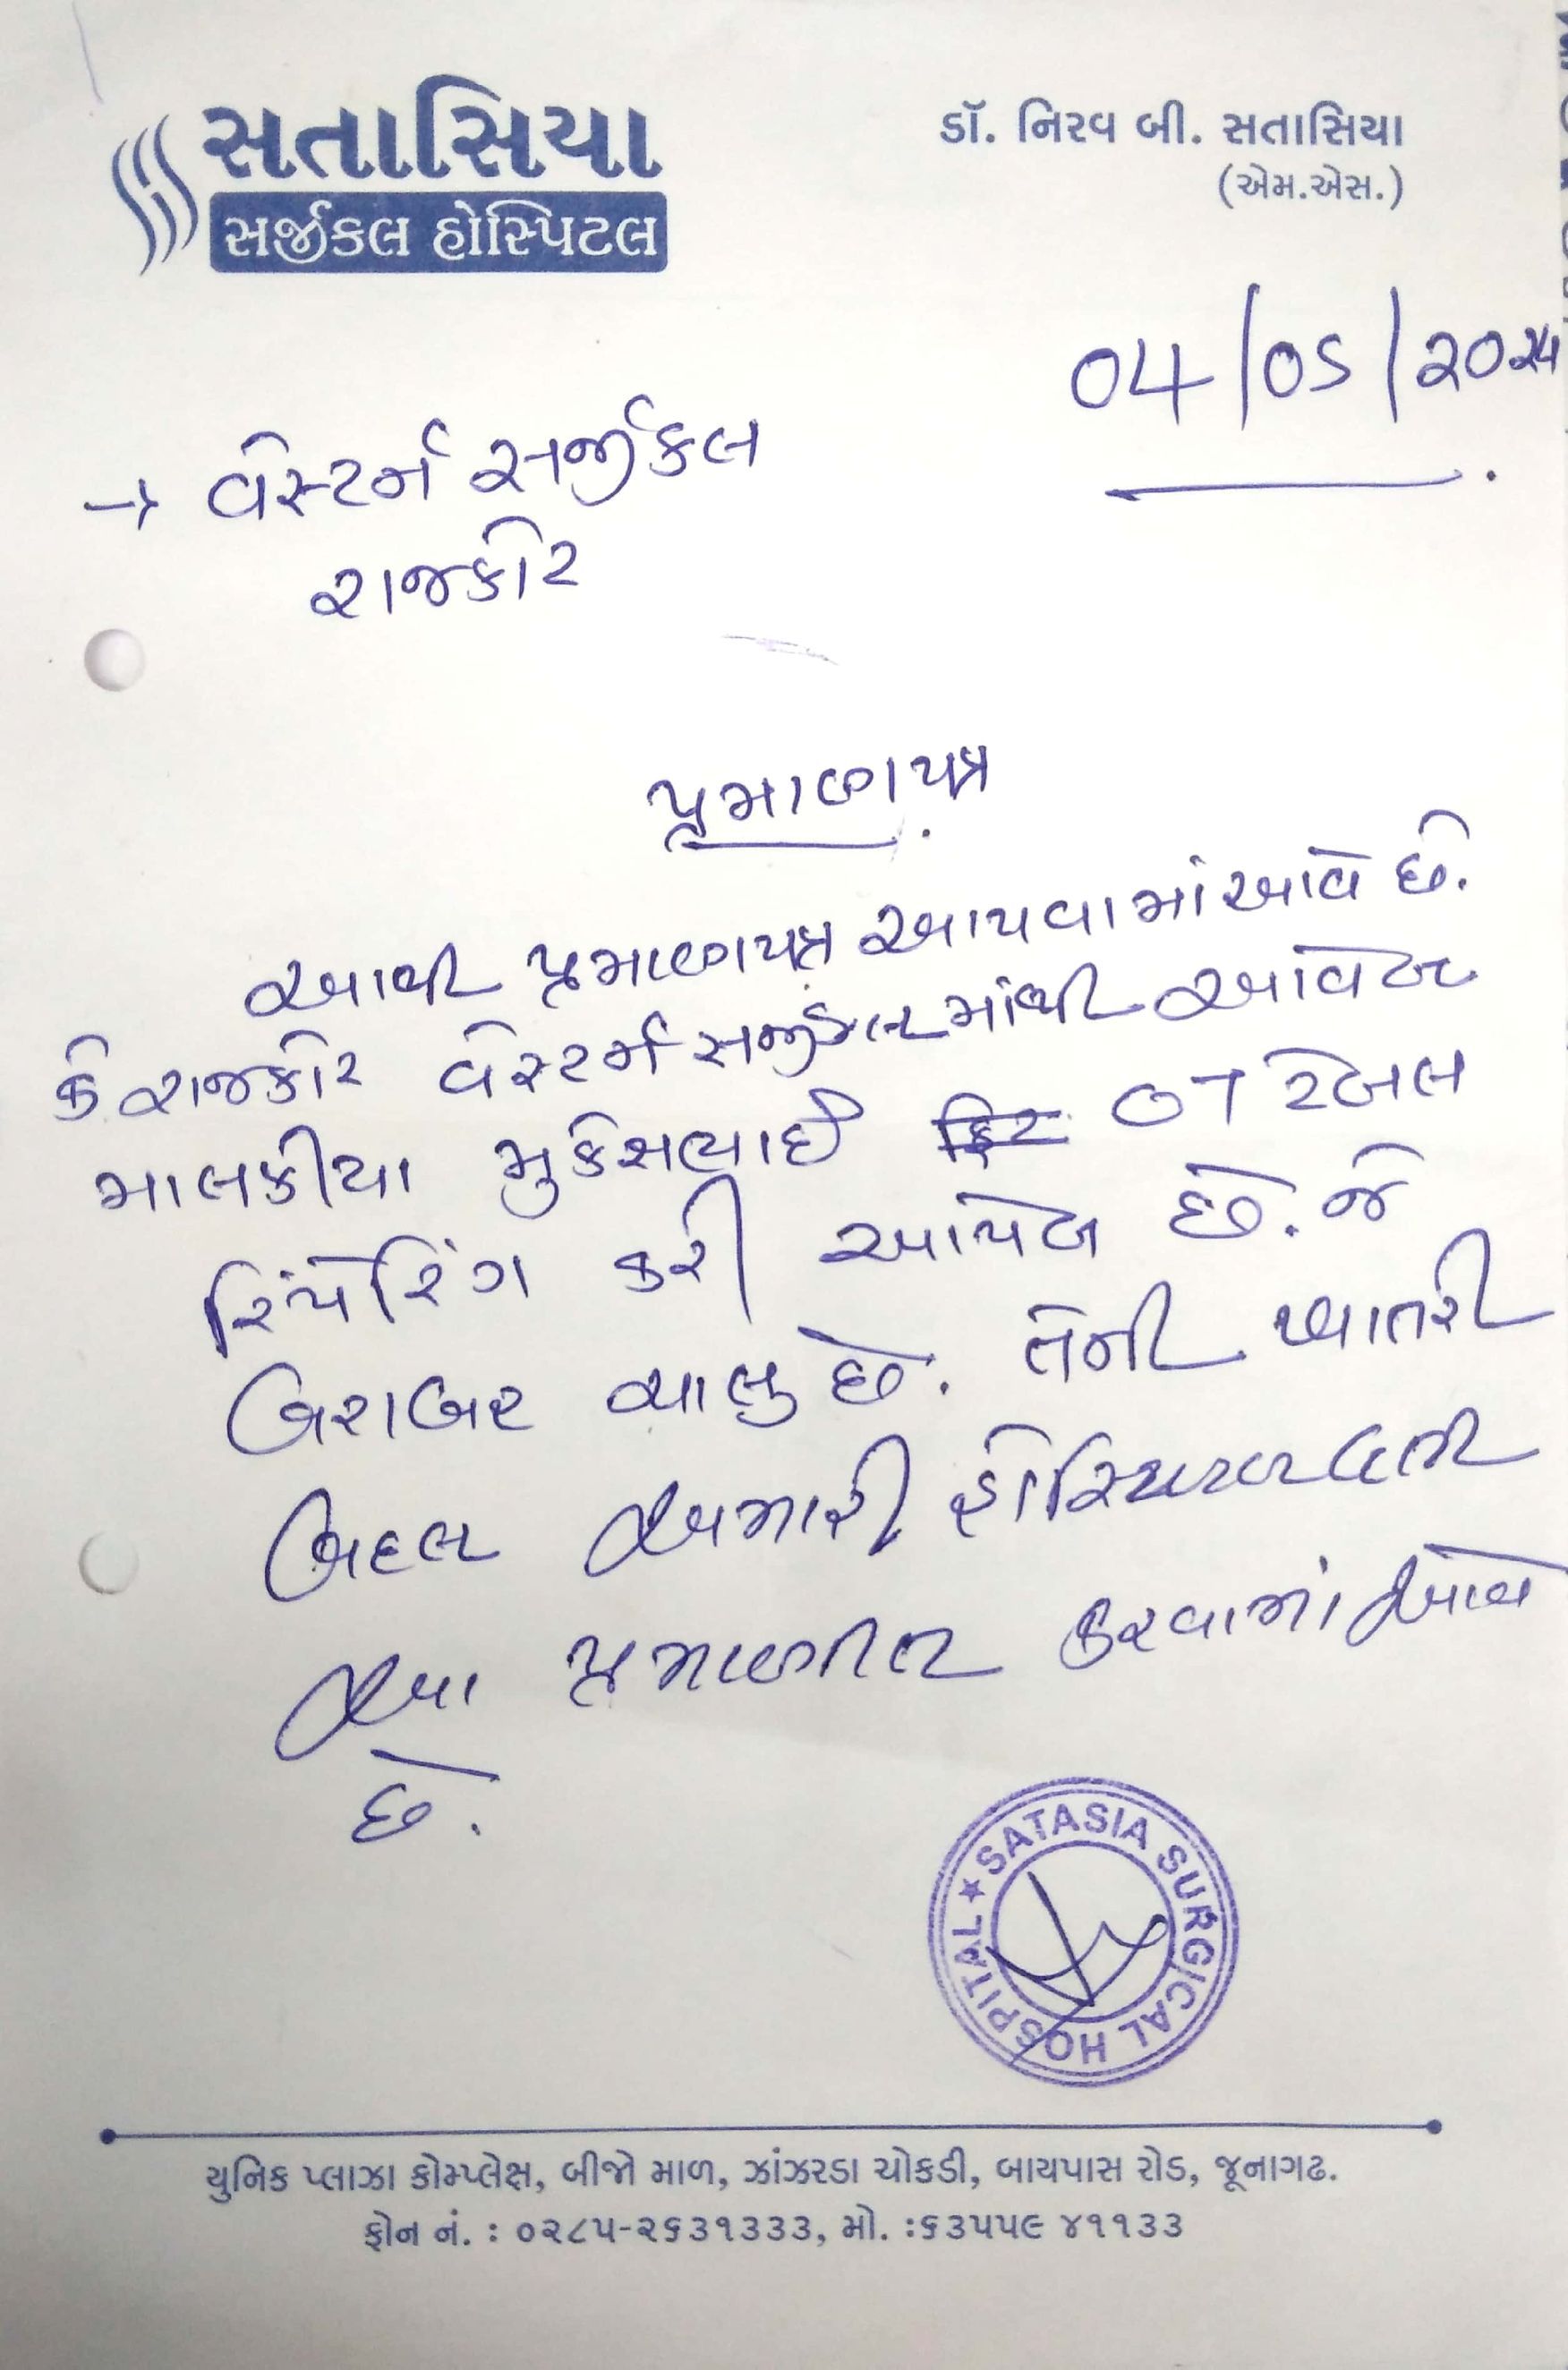 સતાસિયા
સર્જીકલ હોસ્પિટલ
ડૉ. નિરવ બી. સતાસિયા
(એમ.એસ.)
04/05/૨૦૨૫
→ વેસ્ટર્ન સર્જીકલ
રાજકોટ
પ્રમાણપત્ર
આથી પ્રમાણપત્ર આપવામાં આવે છે.
કે રાજકોટ વેસ્ટર્ન સર્જીકલમાંથી આવેલ
માલકીયા મુકેશભાઈ OT ટેબલ
રિપેરિંગ કરી આપેલ છે. જે
બરાબર ચાલુ છે. તેની ખાતરી
બદલ અમારી હોસ્પિટલ વતી
આ પ્રમાણીત કરવામાં આવે
છે.
SATASIA SURGICAL HOSPITAL ★
યુનિક પ્લાઝા કોમ્પ્લેક્ષ, બીજો માળ, ઝાંઝરડા ચોકડી, બાયપાસ રોડ, જૂનાગઢ.
ફોન નં. : ૦૨૮૫-૨૬૩૧૩૩૩, મો. :૬૩૫૫૯ ૪૧૧૩૩